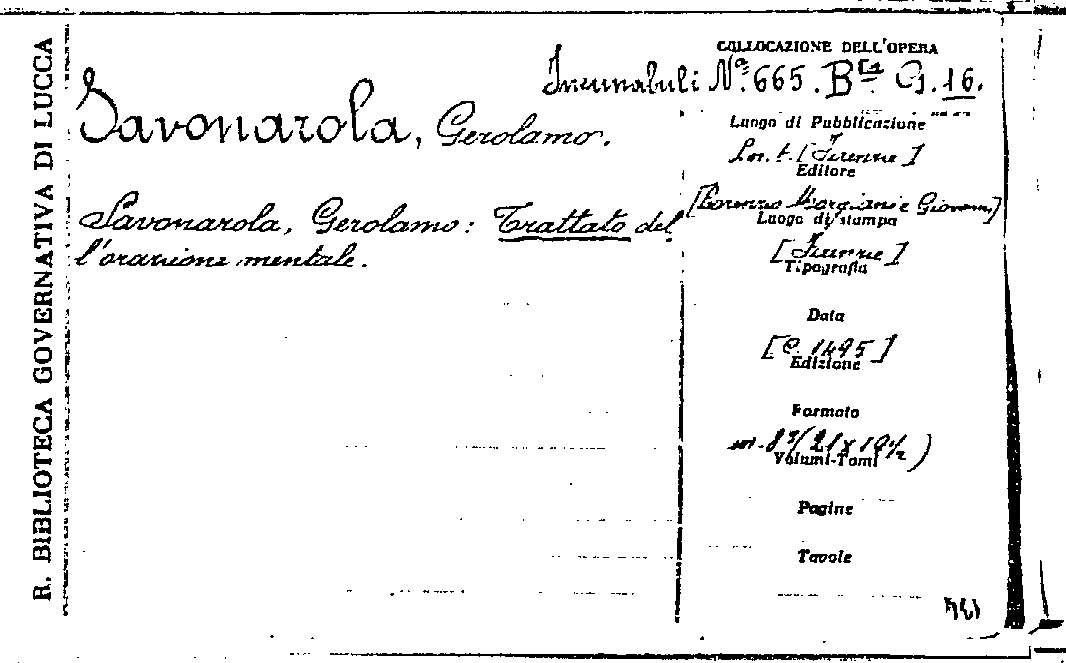 R. BIBLIOTECA GOVERNATIVA DI LUCCA
COLLOCAZIONE DELL'OPERA
Incunabuli Nº. 665. Bta G. 16.
Savonarola, Gerolamo.
Luogo di Pubblicazione
[Firenze]
Editore
Savonarola, Gerolamo: Trattato del
l'orazione mentale.
[Lorenzo Morgiani e Giovan.]
Luogo di stampa
[Firenze]
Tipografia
Data
[C. 1495]
Edizione
Formato
in-8º (21 x
Volumi-Tomi
Pagine
Tavole